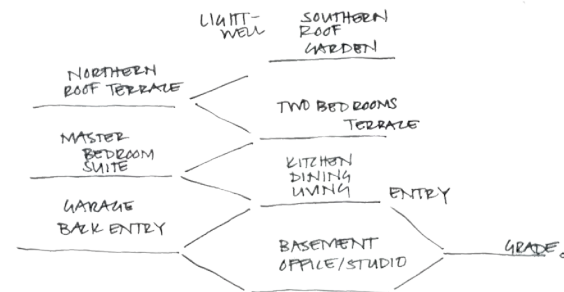 LIGHT-
WELL
SOUTHERN
ROOF
GARDEN
NORTHERN
ROOF TERRACE
TWO BEDROOMS
TERRACE
MASTER
BEDROOM
SUITE
KITCHEN
DINING
LIVING
ENTRY
GARAGE
BACK ENTRY
BASEMENT
OFFICE/STUDIO
GRADE.